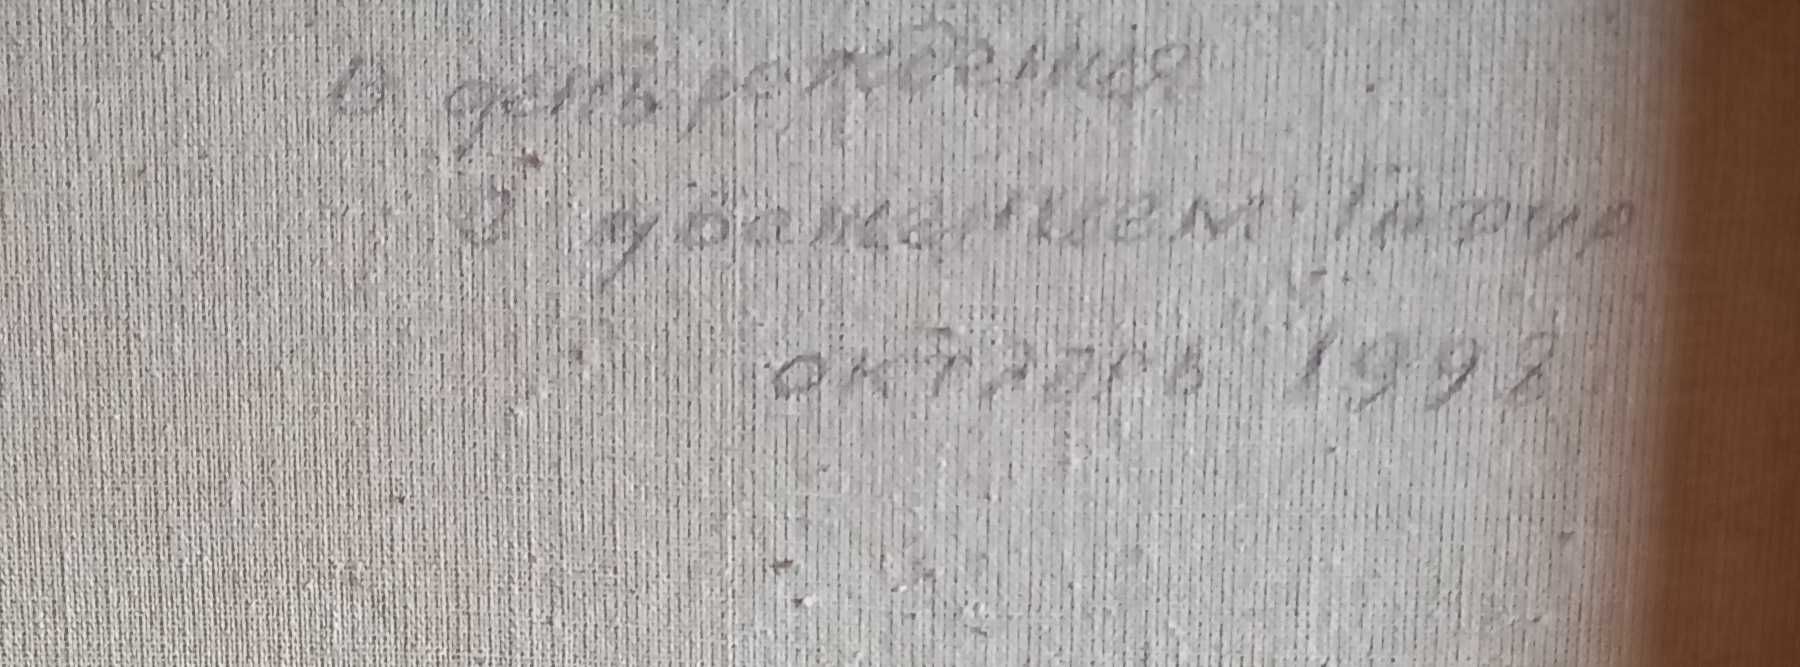 В день рождения
С уважением
октябрь 1992